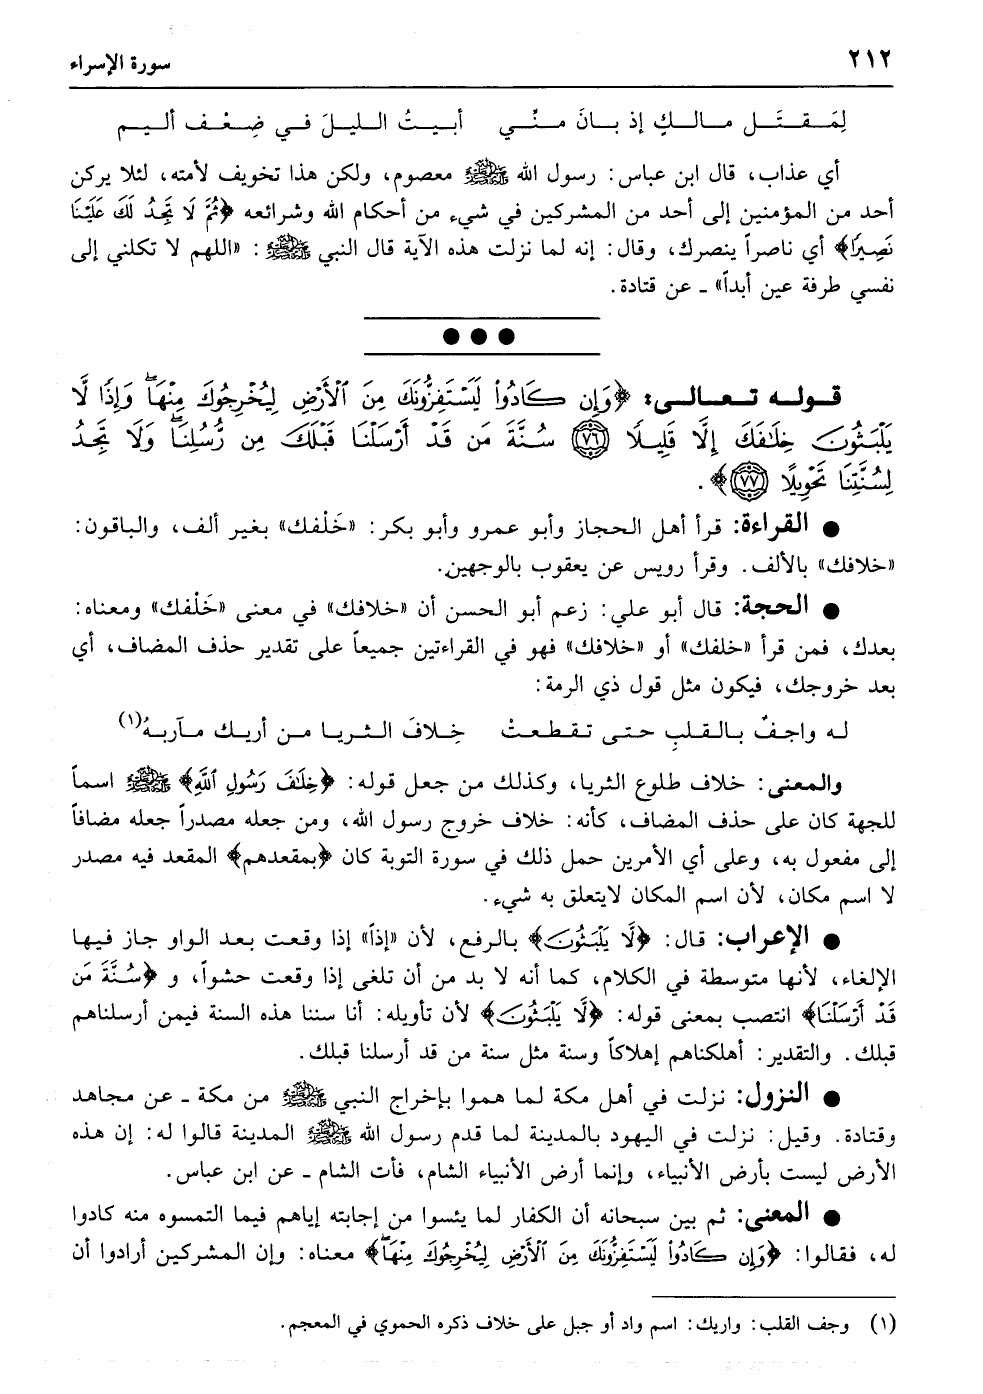 ٢١٢ سورة الإسراء
لِمَقتَل مالكٍ إذ بانَ منِّي أبيتُ الليلَ في ضِعْف أليم
أي عذاب، قال ابن عباس: رسول الله ﷺ معصوم، ولكن هذا تخويف لأمته، لئلا يركن
أحد من المؤمنين إلى أحد من المشركين في شيء من أحكام الله وشرائعه ﴿ثُمَّ لَا تَجِدُ لَكَ عَلَيْنَا
نَصِيرًا﴾ أي ناصراً ينصرك، وقال: إنه لما نزلت هذه الآية قال النبي ﷺ: «اللهم لا تكلني إلى
نفسي طرفة عين أبداً» ـ عن قتادة.
قوله تعالى: ﴿وَإِن كَادُوا۟ لَيَسْتَفِزُّونَكَ مِنَ ٱلْأَرْضِ لِيُخْرِجُوكَ مِنْهَاۖ وَإِذًا لَّا
يَلْبَثُونَ خِلَٰفَكَ إِلَّا قَلِيلًا ﴿٧٦﴾ سُنَّةَ مَن قَدْ أَرْسَلْنَا قَبْلَكَ مِن رُّسُلِنَاۖ وَلَا تَجِدُ
لِسُنَّتِنَا تَحْوِيلًا ﴿٧٧﴾﴾.
● القراءة: قرأ أهل الحجاز وأبو عمرو وأبو بكر: «خَلْفك» بغير ألف، والباقون:
«خلافك» بالألف. وقرأ رويس عن يعقوب بالوجهين.
● الحجة: قال أبو علي: زعم أبو الحسن أن «خلافك» في معنى «خَلْفك» ومعناه:
بعدك، فمن قرأ «خلفك» أو «خلافك» فهو في القراءتين جميعاً على تقدير حذف المضاف، أي
بعد خروجك، فيكون مثل قول ذي الرمة:
له واجفٌ بالقلبِ حتى تقطعتْ خِلافَ الثريا من أريك مآربهُ(١)
والمعنى: خلاف طلوع الثريا، وكذلك من جعل قوله: ﴿خِلَٰفَ رَسُولِ ٱللَّهِ﴾ ﷺ اسماً
للجهة كان على حذف المضاف، كأنه: خلاف خروج رسول الله، ومن جعله مصدراً جعله مضافاً
إلى مفعول به، وعلى أي الأمرين حمل ذلك في سورة التوبة كان ﴿بمقعدهم﴾ المقعد فيه مصدر
لا اسم مكان، لأن اسم المكان لايتعلق به شيء.
● الإعراب: قال: ﴿لَّا يَلْبَثُونَ﴾ بالرفع، لأن «إذاً» إذا وقعت بعد الواو جاز فيها
الإلغاء، لأنها متوسطة في الكلام، كما أنه لا بد من أن تلغى إذا وقعت حشواً، و ﴿سُنَّةَ مَن
قَدْ أَرْسَلْنَا﴾ انتصب بمعنى قوله: ﴿لَّا يَلْبَثُونَ﴾ لأن تأويله: أنا سننا هذه السنة فيمن أرسلناهم
قبلك. والتقدير: أهلكناهم إهلاكاً وسنة مثل سنة من قد أرسلنا قبلك.
● النزول: نزلت في أهل مكة لما هموا بإخراج النبي ﷺ من مكة ـ عن مجاهد
وقتادة. وقيل: نزلت في اليهود بالمدينة لما قدم رسول الله ﷺ المدينة قالوا له: إن هذه
الأرض ليست بأرض الأنبياء، وإنما أرض الأنبياء الشام، فأت الشام ـ عن ابن عباس.
● المعنى: ثم بين سبحانه أن الكفار لما يئسوا من إجابته إياهم فيما التمسوه منه كادوا
له، فقالوا: ﴿وَإِن كَادُوا۟ لَيَسْتَفِزُّونَكَ مِنَ ٱلْأَرْضِ لِيُخْرِجُوكَ مِنْهَاۖ﴾ معناه: وإن المشركين أرادوا أن
(١) وجف القلب: واريك: اسم واد أو جبل على خلاف ذكره الحموي في المعجم.